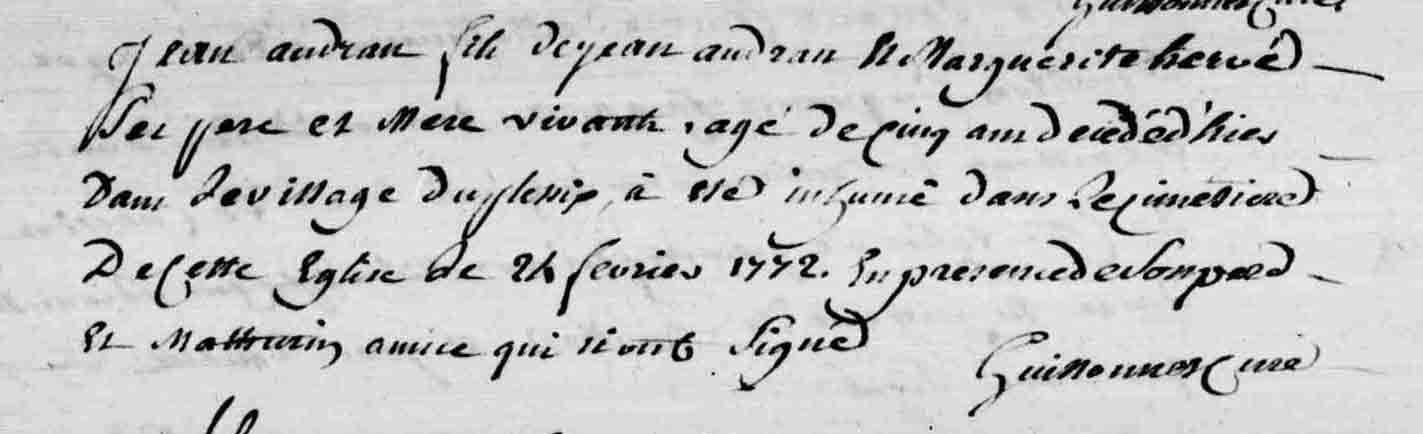 Jean audran fils de jean audran Et Marguerite hervé
Ses pere et Mere vivants, agé de cinq ans decedé d'hier
Dans Le village Du plessix, à eté inhumé dans Le cimetiere
De cette Eglise ce 24 fevrier 1772. En presence de Son pere
Et Mathurin qui n'ont Signé
curé